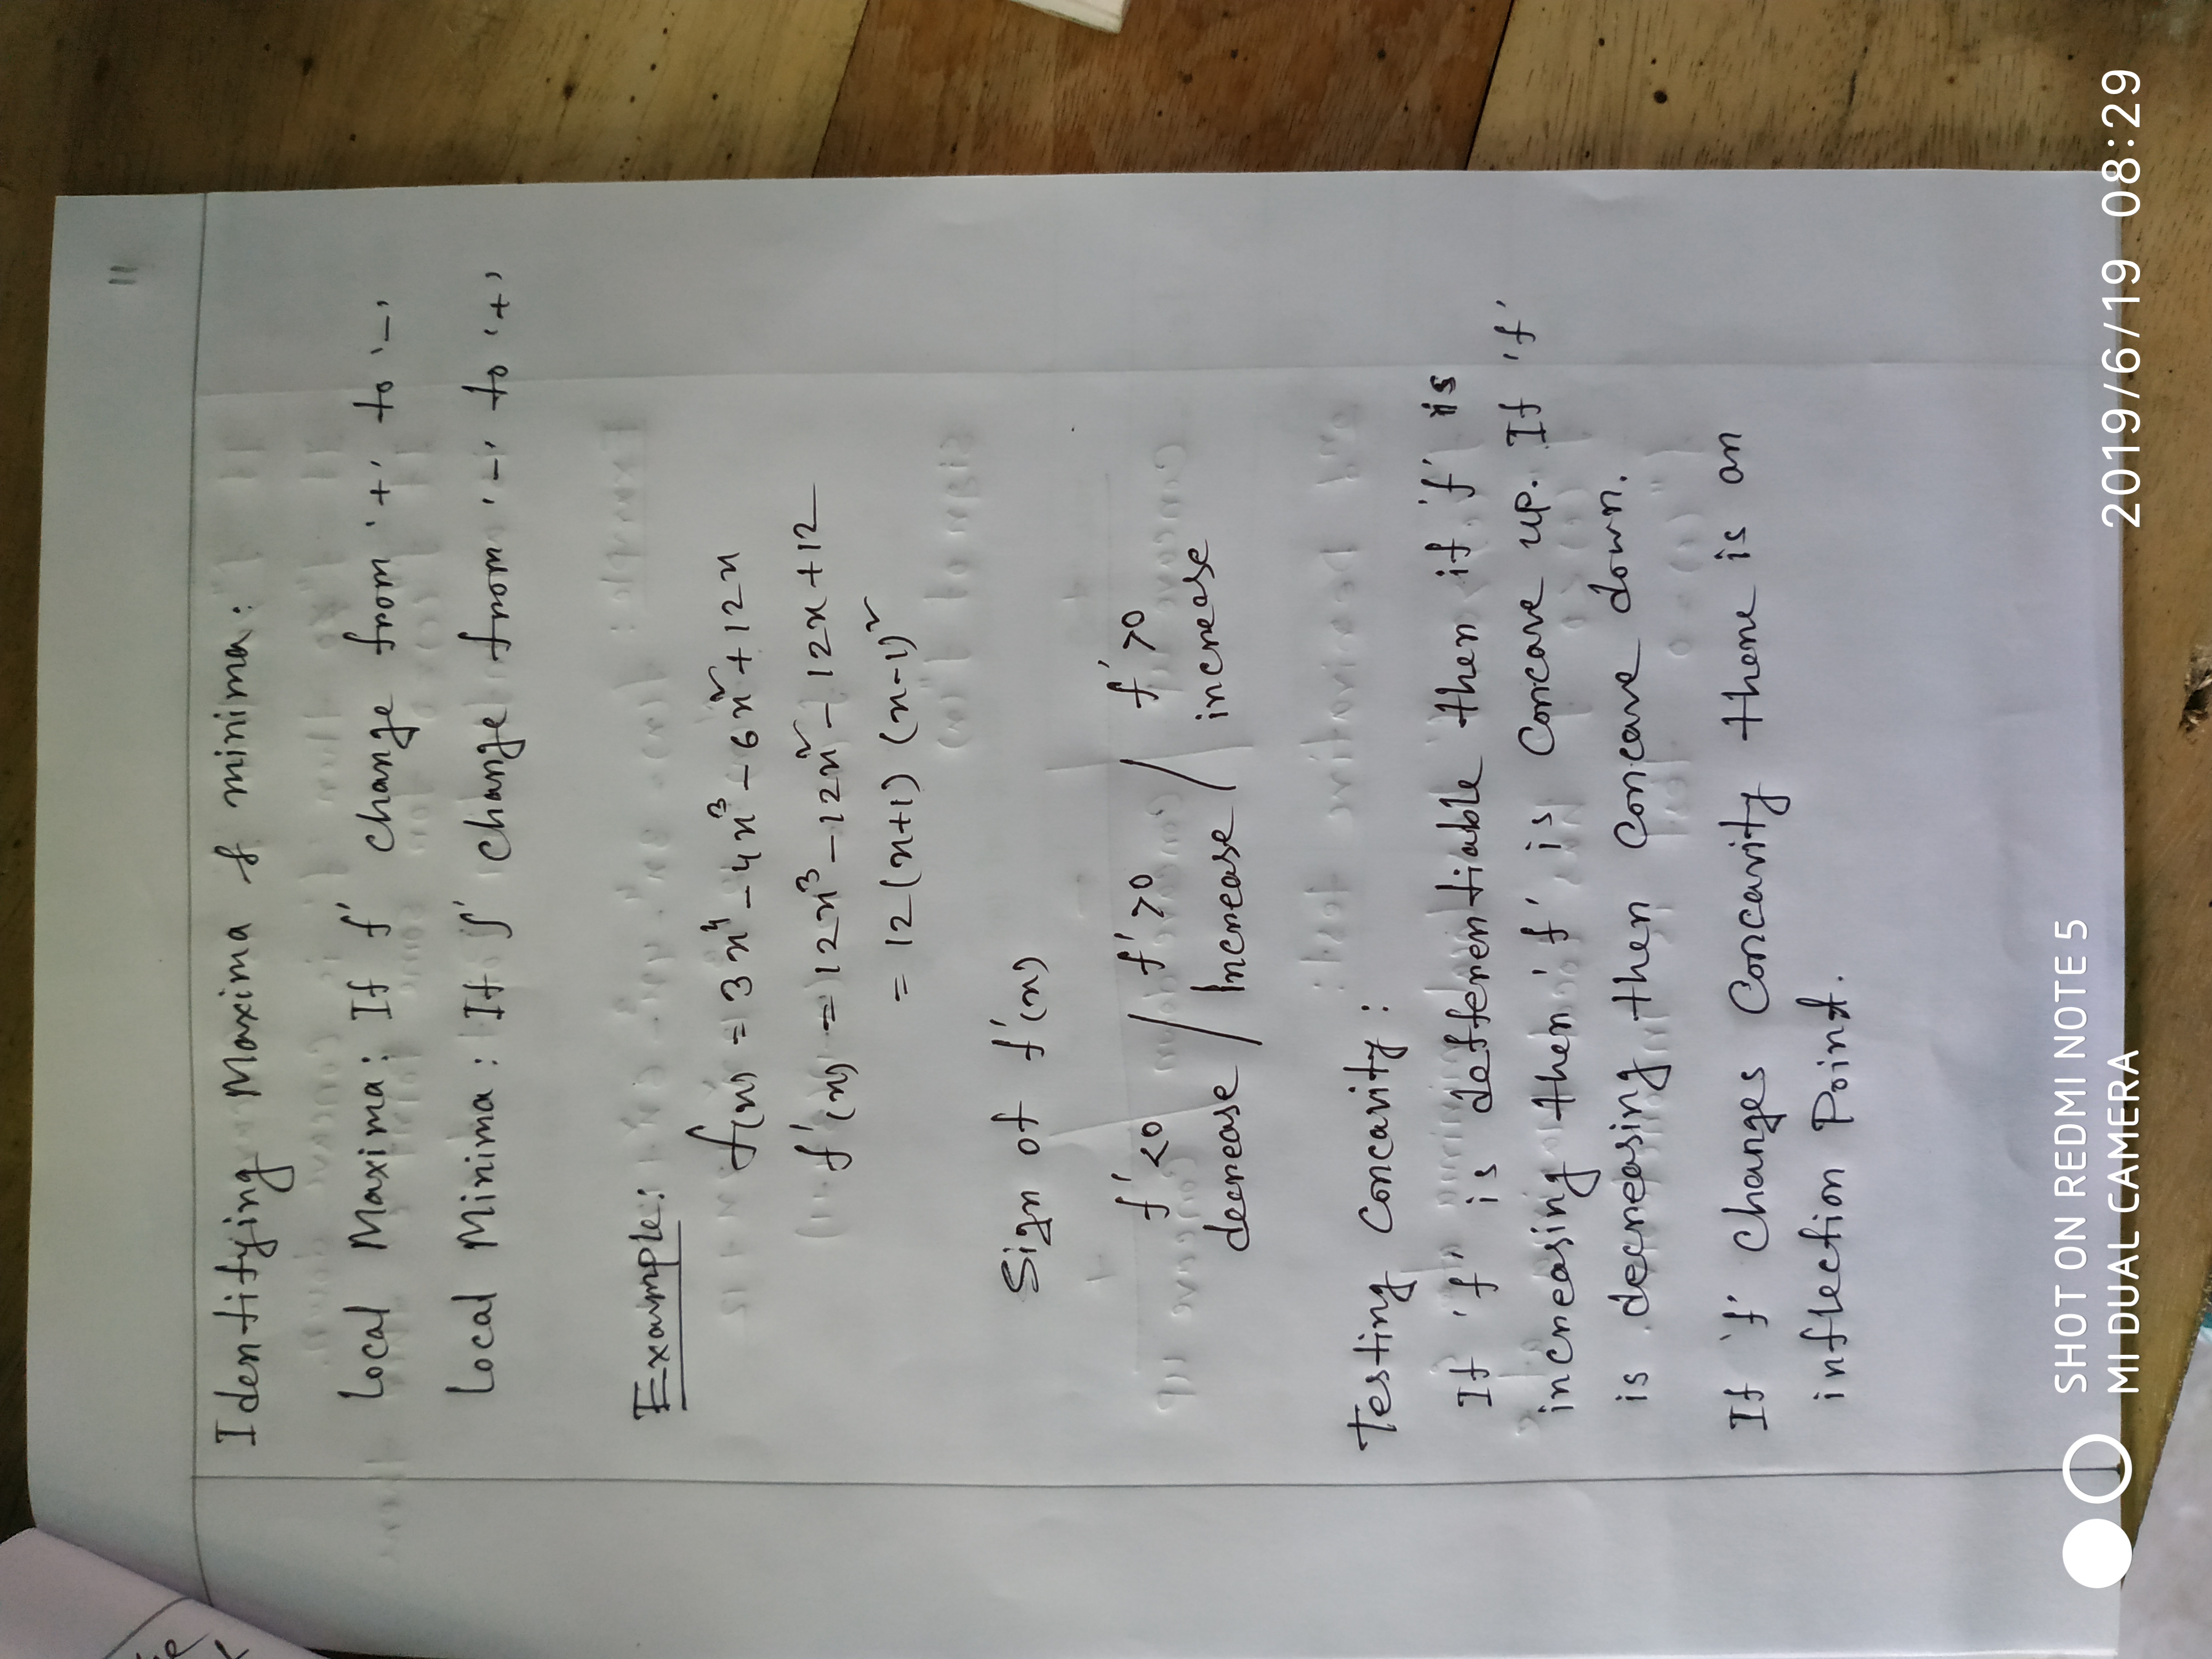 11
Identifying Maxima & minima:
Local Maxima: If f' change from '+' to '-'
Local Minima: If f' change from '-' to '+'
Example:
f(x) = 3x⁴ - 4x³ - 6x² + 12x
f'(x) = 12x³ - 12x² - 12x + 12
= 12(x+1) (x-1)²
Sign of f'(x)
f' <0 / f' >0 / f' >0
decrease / Increase / increase
Testing Concavity:
If 'f' is defferentiable then if 'f' is
increasing then 'f' is Concave up. If 'f'
is decreasing then Concave down.
If 'f' changes Concavity there is an
inflection Point.
SHOT ON REDMI NOTE 5
MI DUAL CAMERA
2019/6/19 08:29